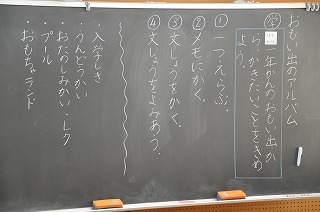 おもい出のアルバム
㋕一年かんのおもい出か
ら、かきたいことをきめ
よう。
① 一つえらぶ。
② メモにかく。
③ 文しょうをかく。
④ 文しょうをよみあう。
・入学しき
・うんどうかい
・おたのしみかい・レク
・プール
・おもちゃランド